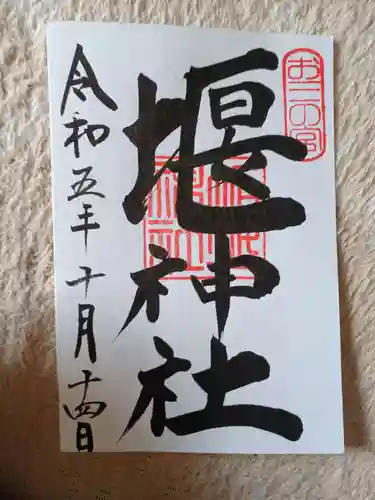 お二の宮
堰神社
令和五年十月十四日